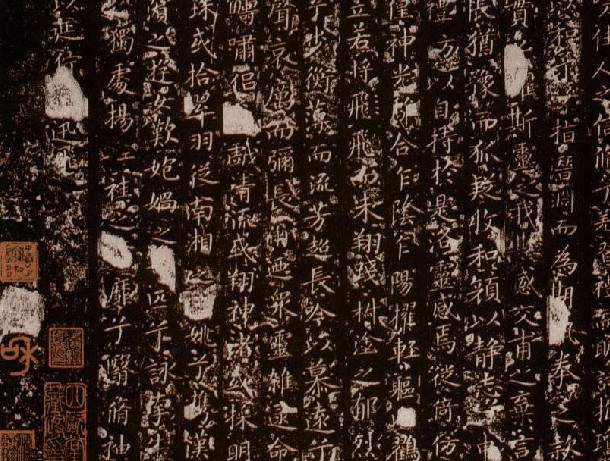 佳人之信脩兮羌習禮而明詩抗瓊
以和予兮指潛淵而為期執眷之款
實懼斯靈之我欺感交甫之棄言
悵猶豫而狐疑收和顏以靜志兮申
禮防以自持於是洛靈感焉徙倚仿
偟神光離合乍陰乍陽擢輕軀以鶴
立若將飛而未翔踐椒塗之郁烈
步衡薄而流芳超長吟以慕遠兮
聲哀厲而彌長爾乃眾靈雜遝命
疇嘯侶戲清流或翔神渚或採明
珠或拾翠羽從南湘之妃攜漢
濱之遊女歎匏媧之匹兮詠牽牛
之獨處揚輕袿之靡兮翳脩袖
以延佇迅飛